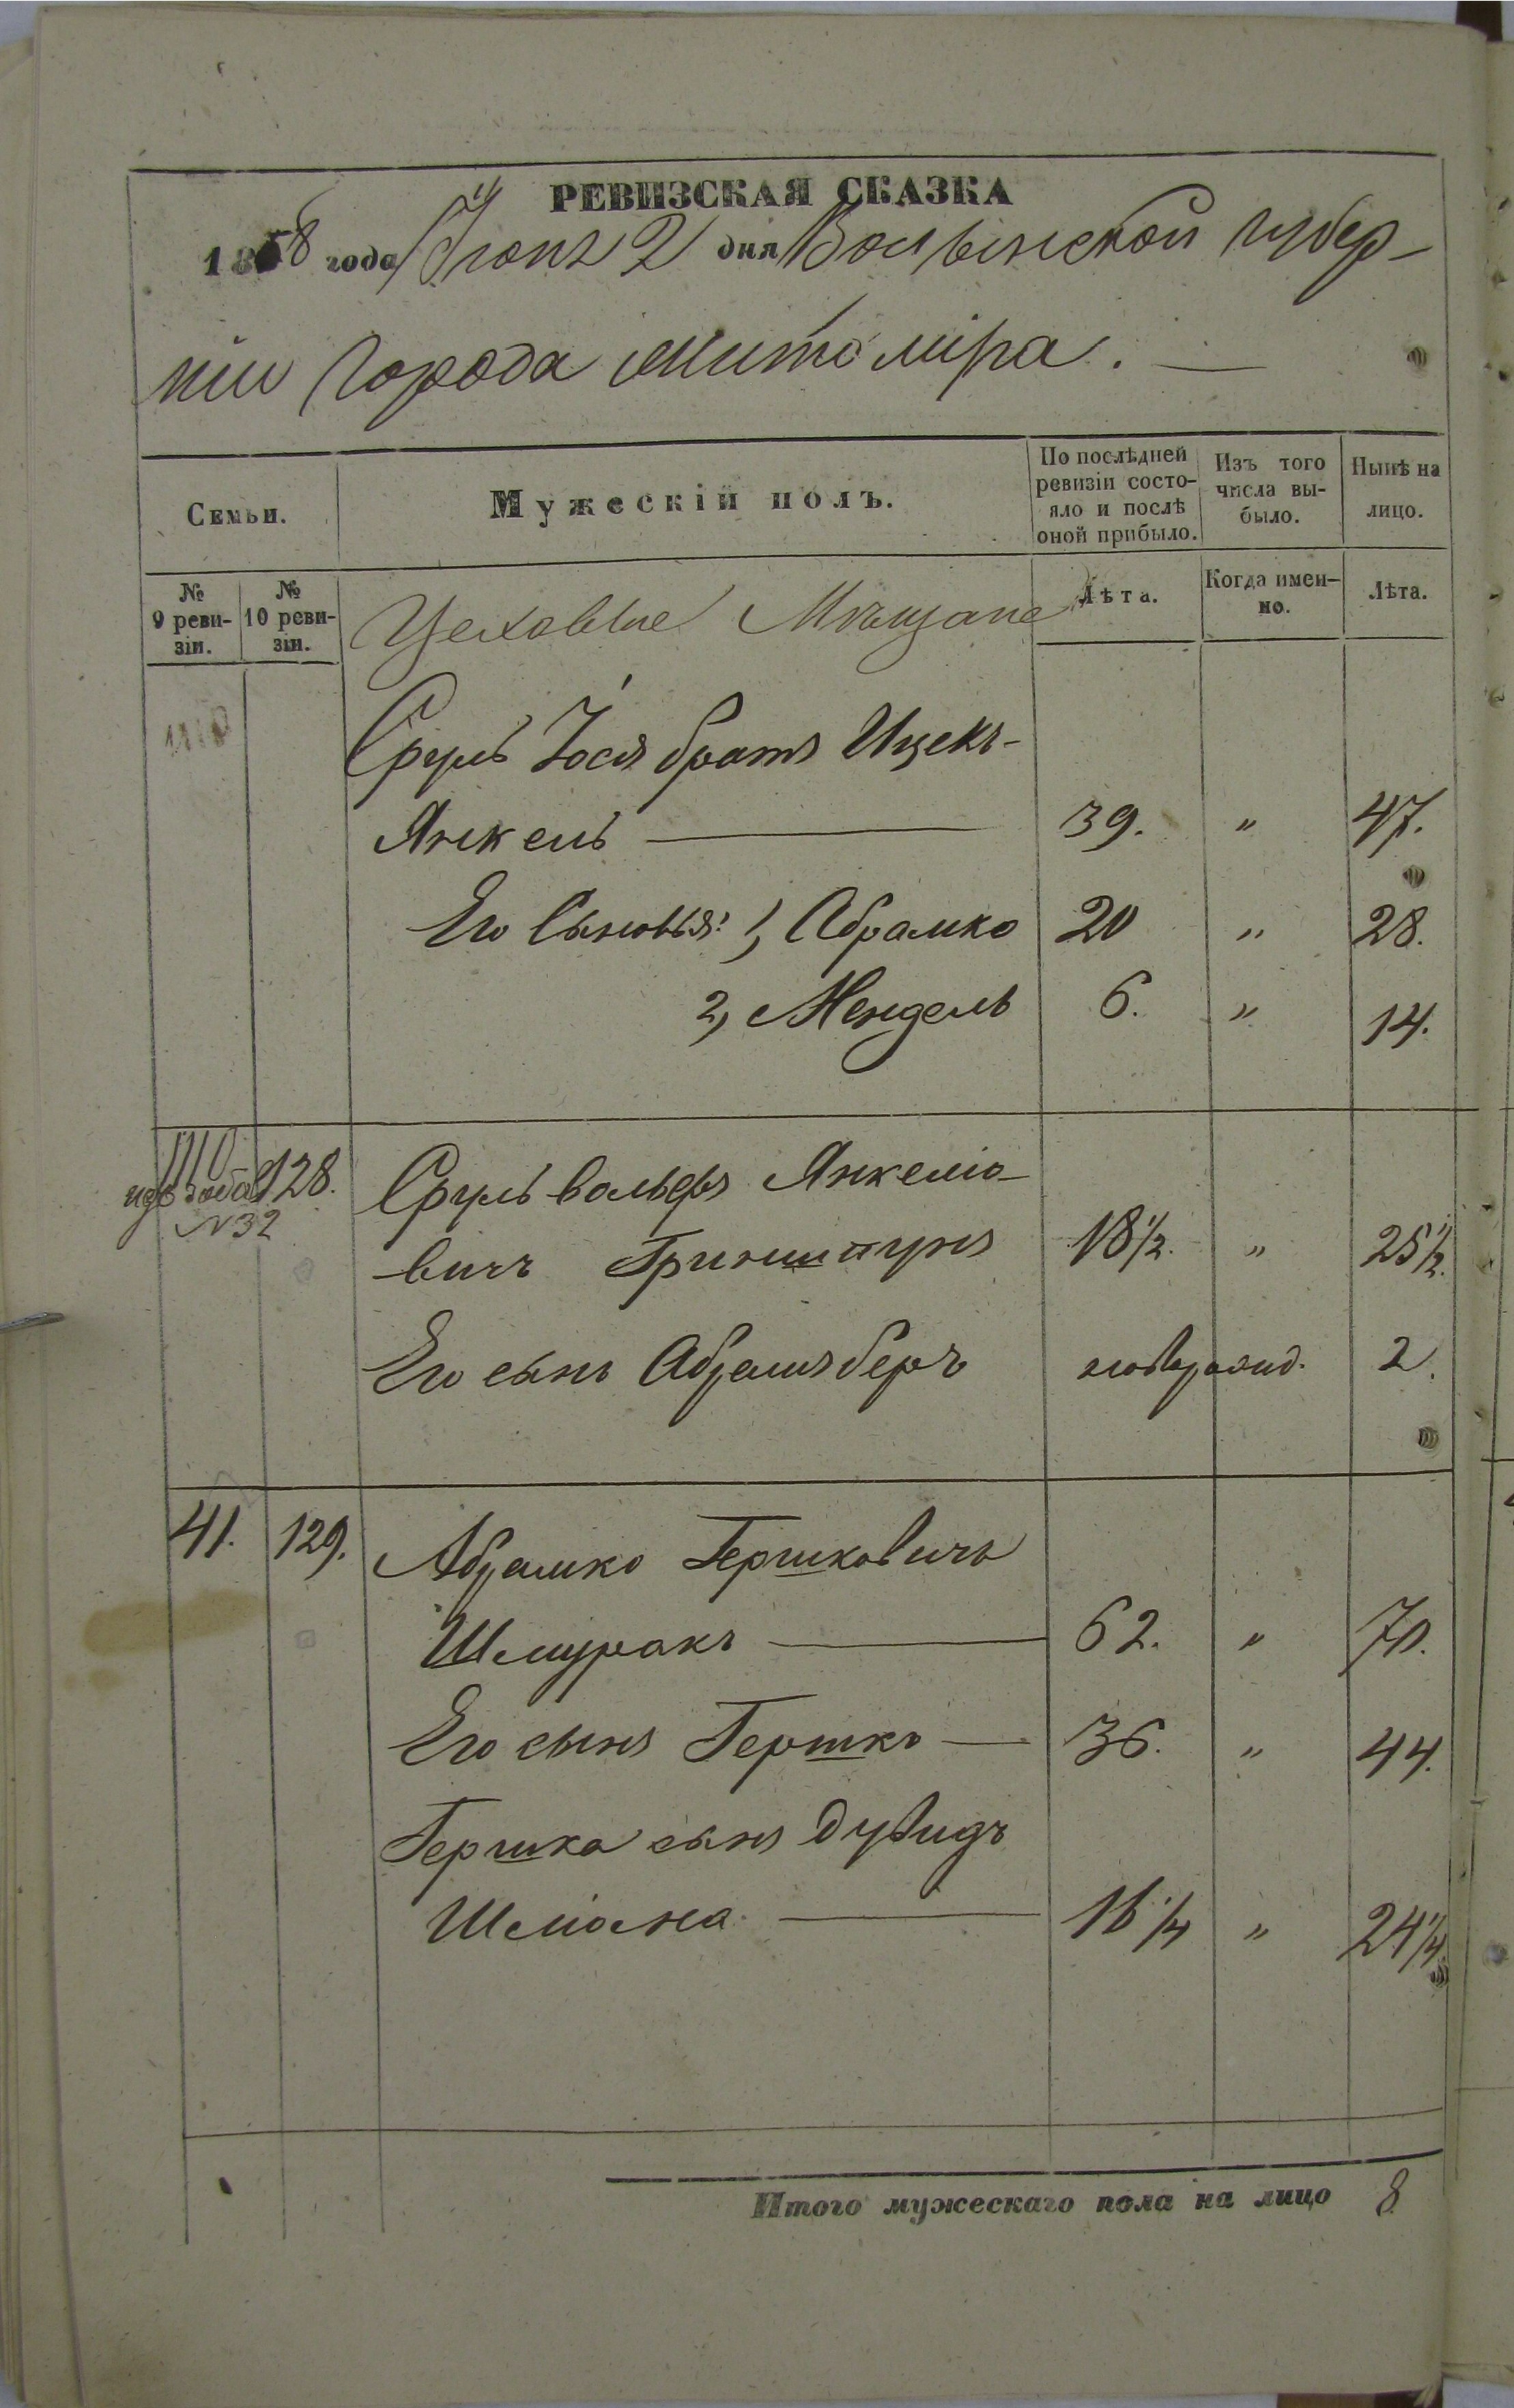 РЕВИЗСКАЯ СКАЗКА
1858 года Іюня 2 дня Волынской губер-
ніи города Житоміра. —
Семьи.
Мужескій полъ.
По послѣдней ревизіи состо-яло и послѣ оной прибыло.
Изъ того числа вы-было.
Нынѣ на лицо.
№ 9 реви-зіи.
№ 10 реви-зіи.
Цеховые Мѣщане
Лѣта.
Когда имен-но.
Лѣта.
Сруль Іося братъ Ицекъ-
Янкель — 39. " 47.
Его Сыновья: 1, Абрамко 20 " 28.
2, Мендель 6. " 14.
128. Сруль Вольфъ Янкеліо-
N32
вичъ Гриншпунъ 18½. " 25½.
Его сынъ Абрамъ Беръ новорожд. 2.
41. 129. Абрамко Гершковичъ
Шмуракъ — 62. " 70.
Его сынъ Гершко — 36. " 44.
Гершка сынъ Дувидъ
Шліома — 16¼ " 24¼.
Итого мужескаго пола на лицо 8